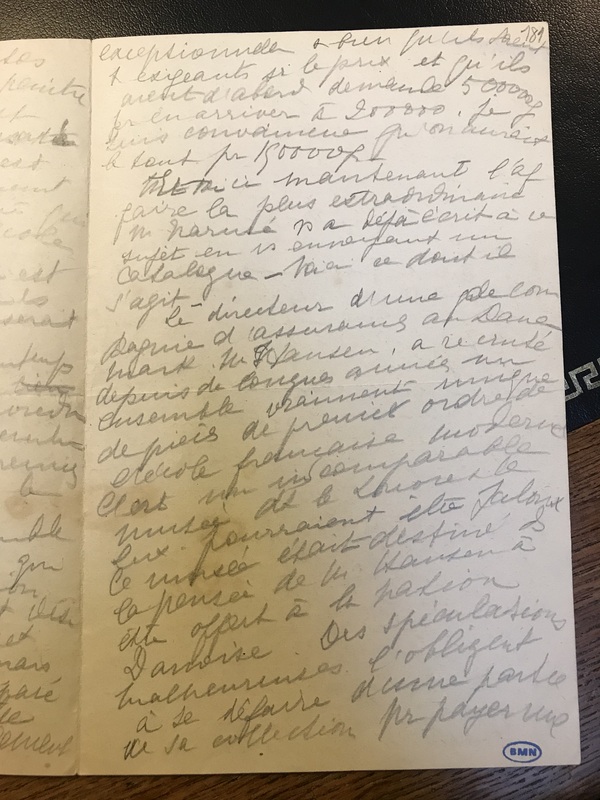 189
exceptionnelle & bien qu'ils soient
exigeants sr le prix et qu'ils
aient d'abord demandé 500000f
pr en arriver à 200000, je
suis convaincue qu'on aurait
le tout pr 150000f
maintenant l'af
faire la plus extraordinaire
M a déjà écrit à ce
sujet en vs envoyant un
catalogue – Voici ce dont il
s'agit
Le directeur d'une gde Com
pagnie d'assurances au Dane
mark, M. Hansen, a recruté
depuis de longues années un
ensemble vraiment unique
de pièces de premier ordre de
l'école française moderne
C'est un incomparable
musée dt le Louvre & le
Lux. pourraient être jaloux
Ce musée était destiné ds
la pensée de M. Hansen à
être offert à la nation
Danoise. Des spéculations
malheureuses l'obligent
à se défaire d'une partie
de sa collection pr payer une
BMN